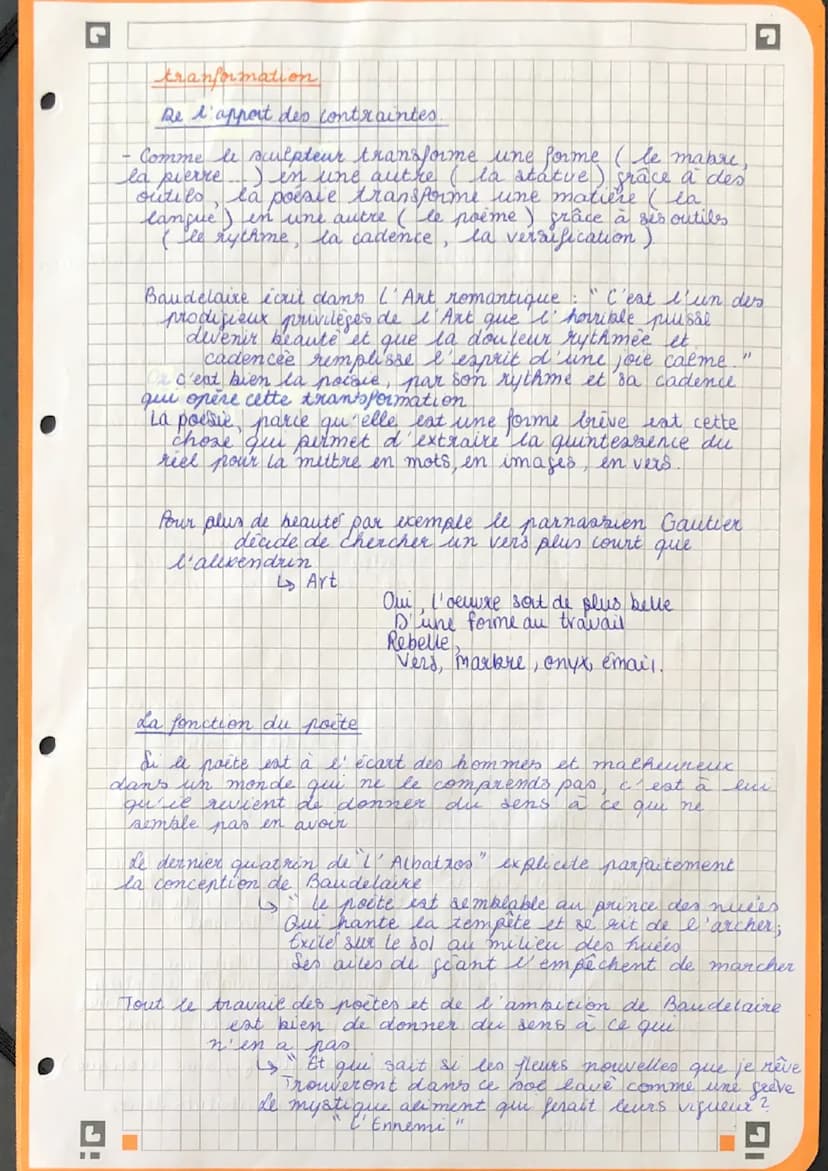 tranformation
De l'apport des contraintes
- Comme le sculpteur transforme une forme ( le mabre,
la pierre ...) en une autre ( la statue) grâce à des
outils, la poésie transforme une matière ( la
langue) en une autre ( le poème ) grâce à ses outils
( le rythme, la cadence, la versification )
Baudelaire écrit dans L'Art romantique : " C'est l'un des
prodigieux privilèges de l'Art que l'horrible puisse
devenir beauté et que la douleur rythmée et
cadencée remplisse l'esprit d'une joie calme."
Or c'est bien la poésie, par son rythme et sa cadence
qui opère cette transformation
La poésie, parce qu'elle est une forme brève est cette
chose qui permet d'extraire la quintessence du
réel pour la mettre en mots, en images, en vers.
Pour plus de beauté par exemple le parnassien Gautier
décide de chercher un vers plus court que
l'alexendrin
↳ Art
Oui, l'oeuvre sort de plus belle
D'une forme au travail
Rebelle,
Vers, marbre, onyx, émail.
La fonction du poète
Si le poète est à l'écart des hommes et malheureux
dans un monde qui ne le comprends pas, c'est à lui
qu'il revient de donner du sens à ce qui ne
semble pas en avoir
Le dernier quatrin de "L'Albatros" explicite parfaitement
la conception de Baudelaire
↳ " Le poète est semblable au prince des nuées
Qui hante la tempête et se rit de l'archer;
Exilé sur le sol au milieu des huées,
Ses ailes de géant l'empêchent de marcher
Tout le travail des poètes et de l'ambition de Baudelaire
est bien de donner du sens à ce qui
n'en a pas
↳ " Et qui sait si les fleurs nouvelles que je rêve
Trouveront dans ce sol lavé comme une grève
Le mystique aliment qui ferait leurs vigueur?
"L'Ennemi"